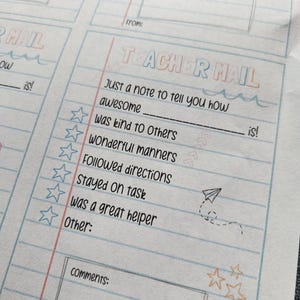 From:
R MAIL
TEACHER MAIL
ow
Just a note to tell you how
is!
awesome ____________ is!
Was kind to others
Wonderful manners
Followed directions
Stayed on task
Was a great helper
Other:
Comments: